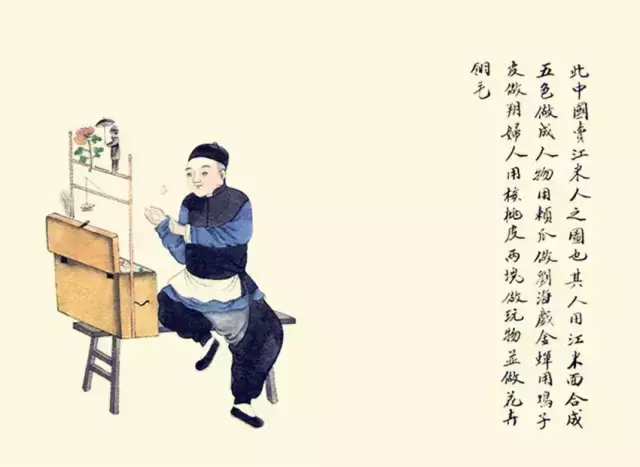 此中國賣江米人之圖也其人用江米面合成
五色做成人物用頼瓜做劉海戲金蟬用子
皮做朔婦人用核桃皮兩塊做玩物並做花卉
翎毛